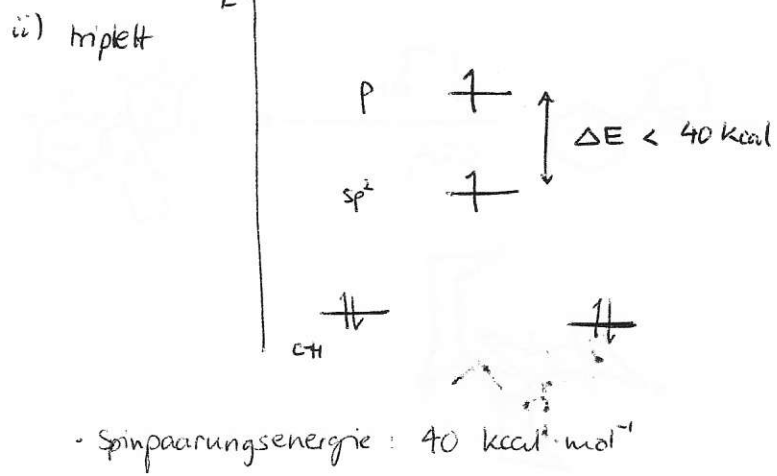 E
ii) triplett
p
ΔE < 40 kcal
sp²
C-H
· Spinpaarungsenergie : 40 kcal·mol⁻¹